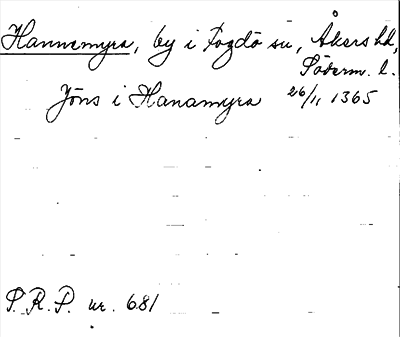 Hannemyra, by i Fogdö sn, Åkers hd,
Söderm. l.
Jöns i Hanamyra 26/11 1365
P. R. P. nr. 681